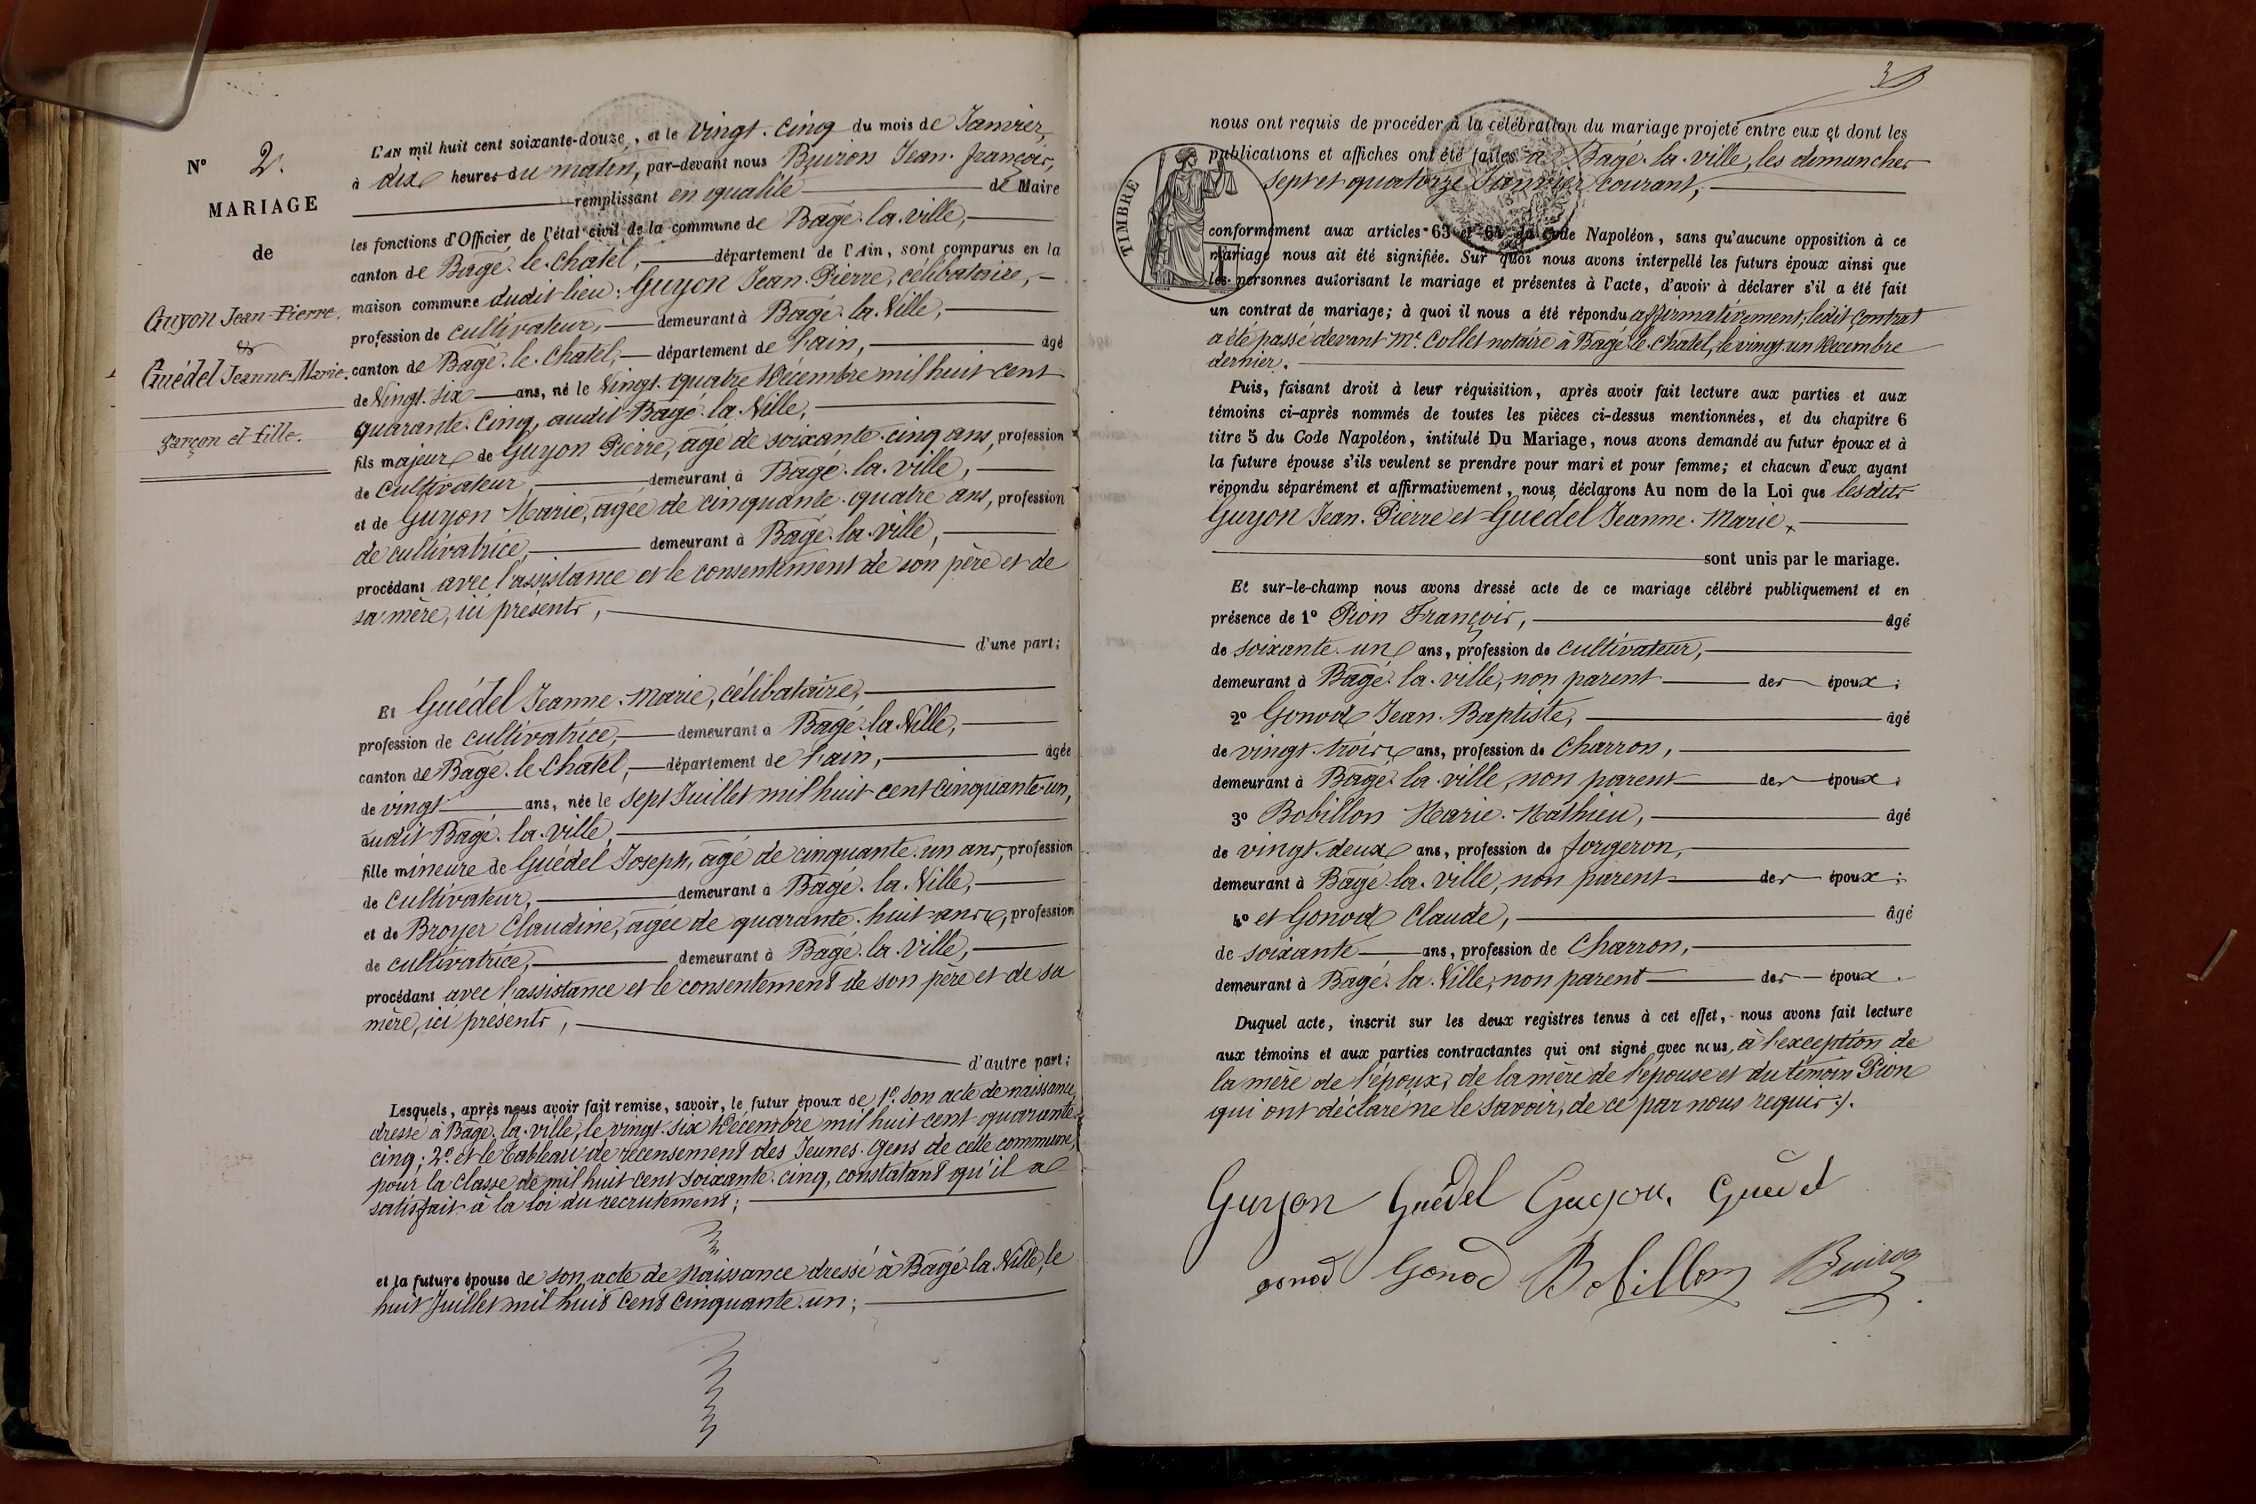 N° 2.
MARIAGE
de
Guyon Jean-Pierre.
&
Guédel Jeanne-Marie.
garçon et fille.
L'AN mil huit cent soixante-douze, et le vingt-cinq du mois de Janvier,
à dix heures du matin, par-devant nous Buiron Jean-François,
remplissant en qualité de Maire
les fonctions d'Officier de l'état civil de la commune de Bagé-la-ville,
canton de Bagé-le-Chatel, département de l'Ain, sont comparus en la
maison commune dudit lieu: Guyon Jean-Pierre, célibataire,
profession de cultivateur, demeurant à Bagé-la-Ville,
canton de Bagé-le-Chatel, département de l'ain, âgé
de Vingt-six ans, né le Vingt-quatre Décembre mil huit cent
quarante-cinq, audit Bagé-la-Ville,
fils majeur de Guyon Pierre, âgé de soixante-cinq ans, profession
de cultivateur, demeurant à Bagé-la-ville,
et de Guyon Marie, âgée de cinquante-quatre ans, profession
de cultivatrice, demeurant à Bagé-la-ville,
procédant avec l'assistance et le consentement de son père et de
sa mère, ici présents,
d'une part;
Et Guédel Jeanne-Marie, célibataire,
profession de cultivatrice, demeurant à Bagé-la-Ville,
canton de Bagé-le-Chatel, département de l'ain, âgée
de vingt ans, née le sept Juillet mil huit cent cinquante-un,
audit Bagé-la-ville,
fille mineure de Guédel Joseph, âgé de cinquante-un ans, profession
de cultivateur, demeurant à Bagé-la-Ville,
et de Broyer Claudine, âgée de quarante-huit ans, profession
de cultivatrice, demeurant à Bagé-la-ville,
procédant avec l'assistance et le consentement de son père et de sa
mère, ici présents,
d'autre part;
Lesquels, après nous avoir fait remise, savoir, le futur époux de 1°. son acte de naissance,
dressé à Bagé-la-ville, le vingt-six Décembre mil huit cent quarante-
cinq; 2°. et le Tableau de recensement des Jeunes-Gens de cette commune,
pour la classe de mil huit cent soixante-cinq, constatant qu'il a
satisfait à la loi du recrutement;
et la future épouse de son acte de Naissance dressé à Bagé-la-Ville, le
huit Juillet mil huit cent cinquante-un;
3
TIMBRE
nous ont requis de procéder à la célébration du mariage projeté entre eux et dont les
publications et affiches ont été faites à Bagé-la-ville, les dimanches
sept et quatorze Janvier courant,
conformément aux articles 63 et 64 du Code Napoléon, sans qu'aucune opposition à ce
mariage nous ait été signifiée. Sur quoi nous avons interpellé les futurs époux ainsi que
les personnes autorisant le mariage et présentes à l'acte, d'avoir à déclarer s'il a été fait
un contrat de mariage; à quoi il nous a été répondu affirmativement; ledit contrat
a été passé devant Me. Collet notaire à Bagé-le-Chatel, le vingt-un Décembre
dernier.
Puis, faisant droit à leur réquisition, après avoir fait lecture aux parties et aux
témoins ci-après nommés de toutes les pièces ci-dessus mentionnées, et du chapitre 6
titre 5 du Code Napoléon, intitulé Du Mariage, nous avons demandé au futur époux et à
la future épouse s'ils veulent se prendre pour mari et pour femme; et chacun d'eux ayant
répondu séparément et affirmativement, nous déclarons Au nom de la Loi que lesdits
Guyon Jean-Pierre et Guédel Jeanne-Marie,
sont unis par le mariage.
Et sur-le-champ nous avons dressé acte de ce mariage célébré publiquement et en
présence de 1° Pion François, âgé
de soixante-un ans, profession de cultivateur,
demeurant à Bagé-la-ville, non parent des époux;
2° Gonod Jean-Baptiste, âgé
de vingt-trois ans, profession de charron,
demeurant à Bagé-la-ville, non parent des époux;
3° Bobillon Marie-Mathieu, âgé
de vingt-deux ans, profession de forgeron,
demeurant à Bagé-la-ville, non parent des époux;
4° et Gonod Claude, âgé
de soixante ans, profession de charron,
demeurant à Bagé-la-Ville, non parent des époux.
Duquel acte, inscrit sur les deux registres tenus à cet effet, nous avons fait lecture
aux témoins et aux parties contractantes qui ont signé avec nous, à l'exception de
la mère de l'époux, de la mère de l'épouse et du témoin Pion
qui ont déclaré ne le savoir, de ce par nous requis./.
Guyon Guédel Guyon Guédel
gonod Gonod Bobillon Buiron